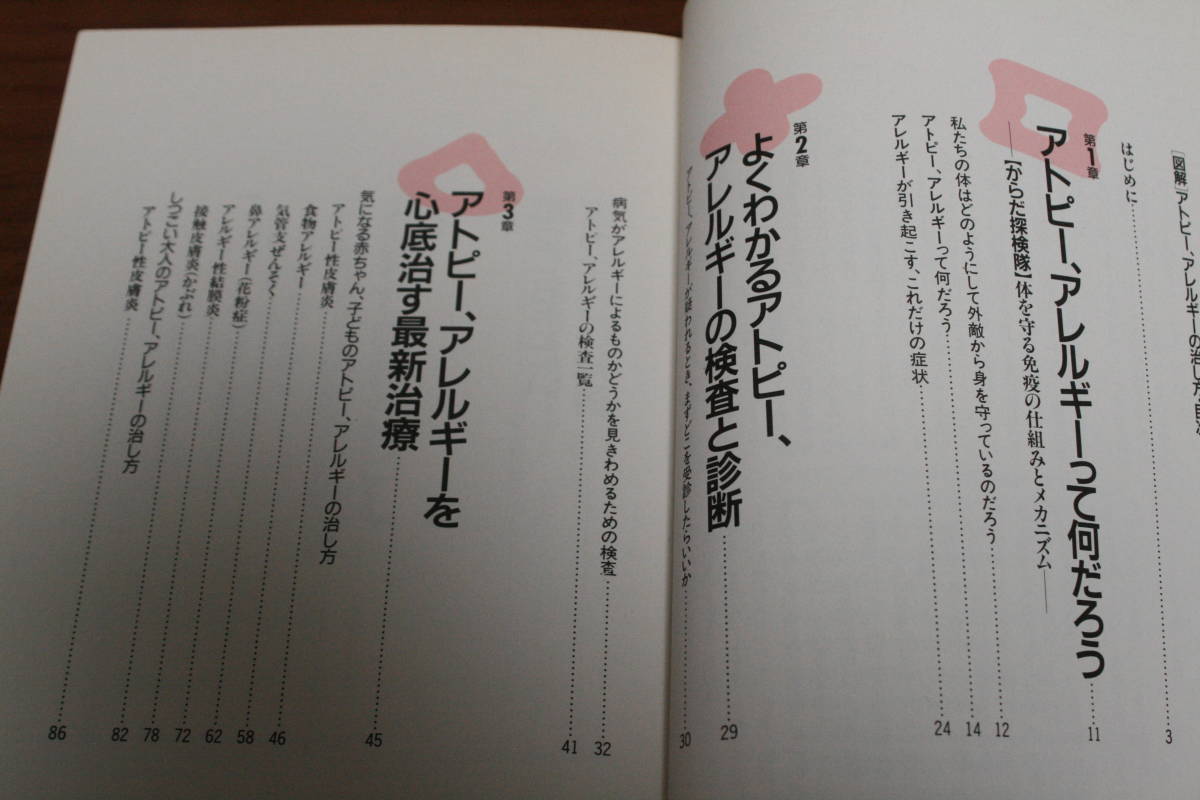 [図解]アトピー、アレルギーの治し方・自
はじめに 3
第1章
アトピー、アレルギーって何だろう 11
——【からだ探検隊】体を守る免疫の仕組みとメカニズム——
私たちの体はどのようにして外敵から身を守っているのだろう 12
アトピー、アレルギーって何だろう 14
アレルギーが引き起こす、これだけの症状 24
第2章
よくわかるアトピー、
アレルギーの検査と診断 29
アトピー、アレルギーが疑われるとき、まずどこを受診したらいいか 30
病気がアレルギーによるものかどうかを見きわめるための検査 32
アトピー、アレルギーの検査一覧 41
第3章
アトピー、アレルギーを
心底治す最新治療 45
気になる赤ちゃん、子どものアトピー、アレルギーの治し方
アトピー性皮膚炎 46
食物アレルギー 58
気管支ぜんそく 62
鼻アレルギー(花粉症) 72
アレルギー性結膜炎 78
接触皮膚炎(かぶれ) 82
しつこい大人のアトピー、アレルギーの治し方
アトピー性皮膚炎 86